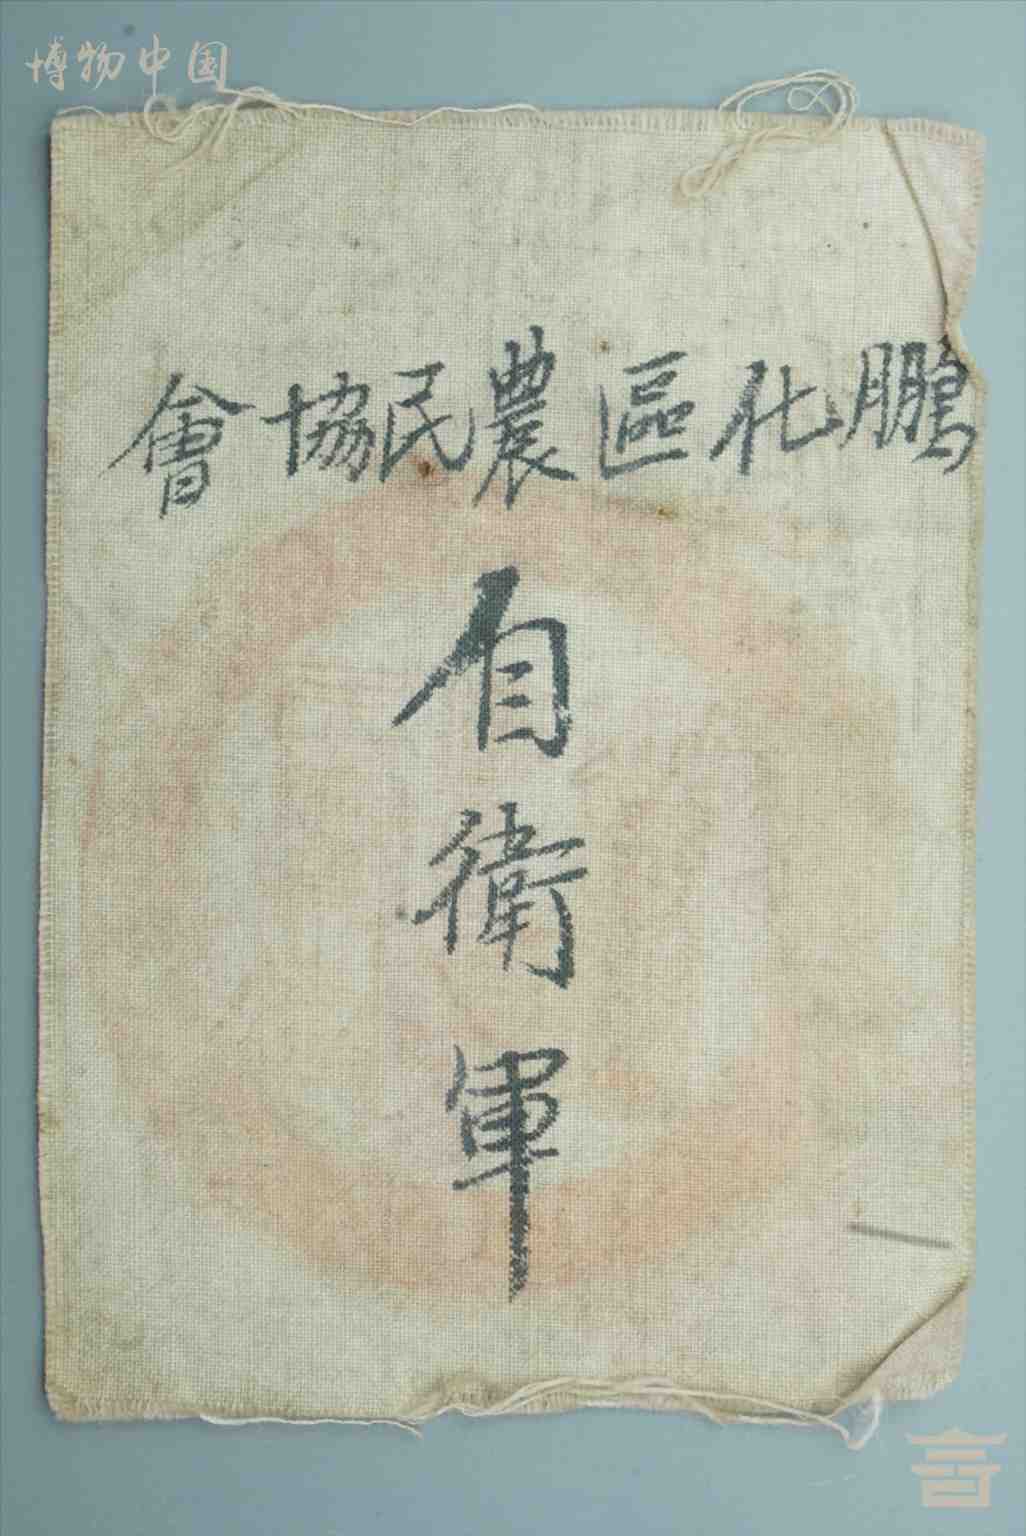 博物中国
鵬化區農民協會
自衛軍